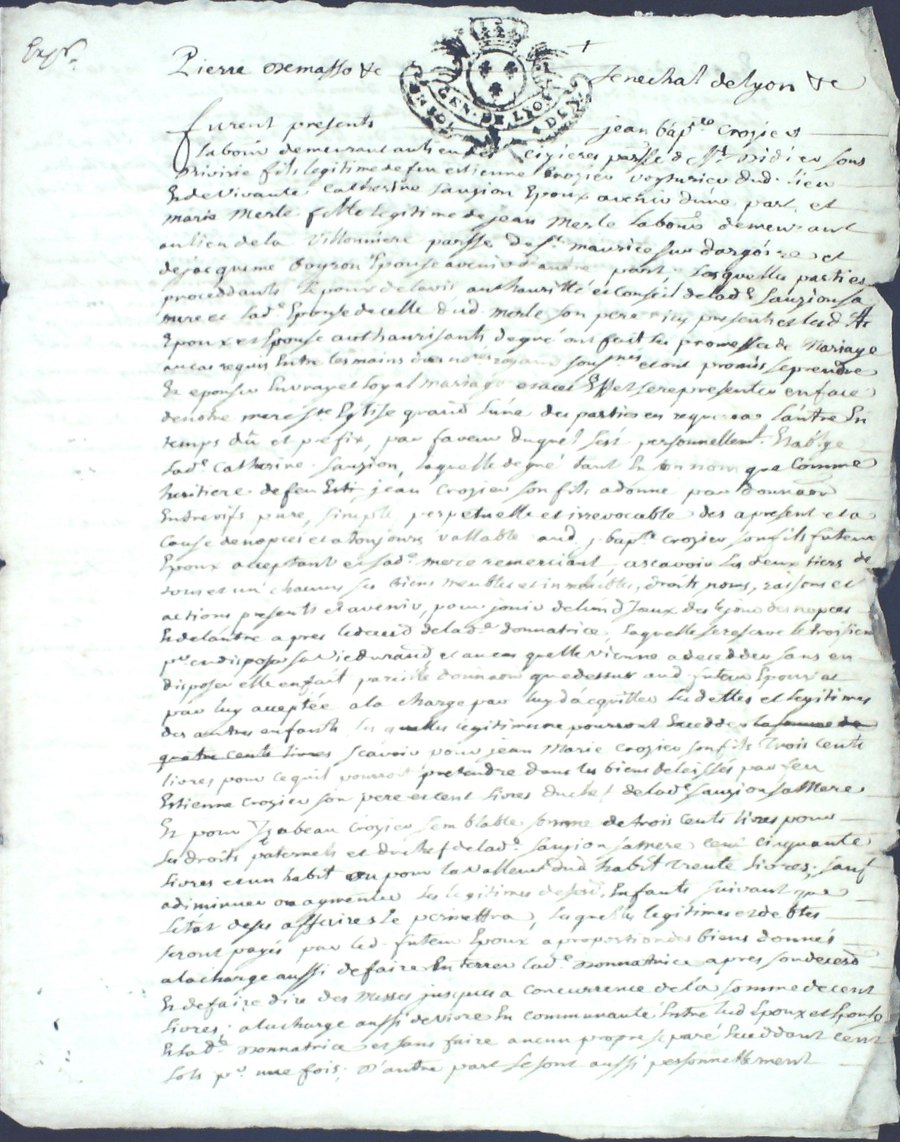 Exp.r
Pierre Demasso &c Senechal de lyon &c
GEN. DE LYON
furent presents jean bap.te Crozier
labour demeurant au lieu des paroisse de St Didier sous
Rivirie fils legitime de feu estienne Crozier voyturier dud. lieu
Et de vivante Catherine sauzion Epoux avenir dune part, et
marie Merle fille legitime de jean Merle labour. demeurant
au lieu de la Villonniere paroisse de St maurice sur dargoire et
de jacqueme Epouse avenir d'autre part Lesquelles parties
proceddants L'Epoux de lavis authaurité et Conseil de lad.e Sauzion sa
mere et lad.e Epouse de celle dud. merle son pere icy presents et led.
Epoux et Epouse authaurisants de gré ont fait les promesses de Mariage
au cas requis Entre les mains du no.re royal sous.né et ont promis se prendre
Et epouser En vray et loyal mariage et a cet Effet se representer en face
de notre mere S.te Eglise quand l'une des parties en requerra l'autre En
temps dû et prefix, par faveur duquel s'est personnellem.t Etablye
lad.e Catherine Sauzion, laquelle de gré tant En son nom que Comme
heritiere de feu jean Crozier son fils a donné par donnaon
Entrevifs pure, simple, perpetuelle et irrevocable des apresent et a
Cause de nopces et a toujours vallable aud. j. bap.te Crozier son fils futeur
Epoux acceptant et sad.e mere remerciant, ascavoir les deux tiers de
tous et un chacuns ses biens meubles et immeubles, droits noms, raisons et
actions presents et avenir, pour jouir de lun d'Iceux des le jour des nopces
Et de lautre apres le deced de lad.e donnatrice, laquelle se reserve le troisiem
p.r en disposer sa vie durand et au cas quelle vienne a decedder sans en
disposer elle en fait pareille donnaon que dessus aud. futeur Epoux et
par luy acceptée a la charge par luy d'acquitter les dettes et legitimes
des autres enfants lesquelles legitimes ne pourront Excedder la somme de
quatre cents livres scavoir pour jean Marie Crozier son fils trois cents
livres pour ce quil pourroit pretendre dans les biens delaissés par feu
Estienne Crozier son pere et cent livres du chef de lad.e sauzion sa Mere
Et pour Yzabeau Crozier semblable somme de trois cents livres pour
ses droits paternels et du chef de lad.e Sauzion sa mere cent cinquante
livres et un habit ou pour la valleur dud. habit trente livres; sauf
a diminuer ou augmenter les legitimes desd. Enfants suivant que
l'état de ses affaires le permettra, lesquelles legitimes et debtes
seront payés par led. futeur Epoux a proportion des biens donnés
a la charge aussi de faire Enterrer lad.e Donnatrice apres son deced
Et de faire dire des Messes jusques a concurrence de la somme de cent
livres; a la charge aussi de vivre En communauté Entre lesd Epoux et Epouse
Et lad.e Donnatrice et sans faire aucun propre separé Exceddant cent
sols p.r une fois; D'autre part se sont aussi personnellement